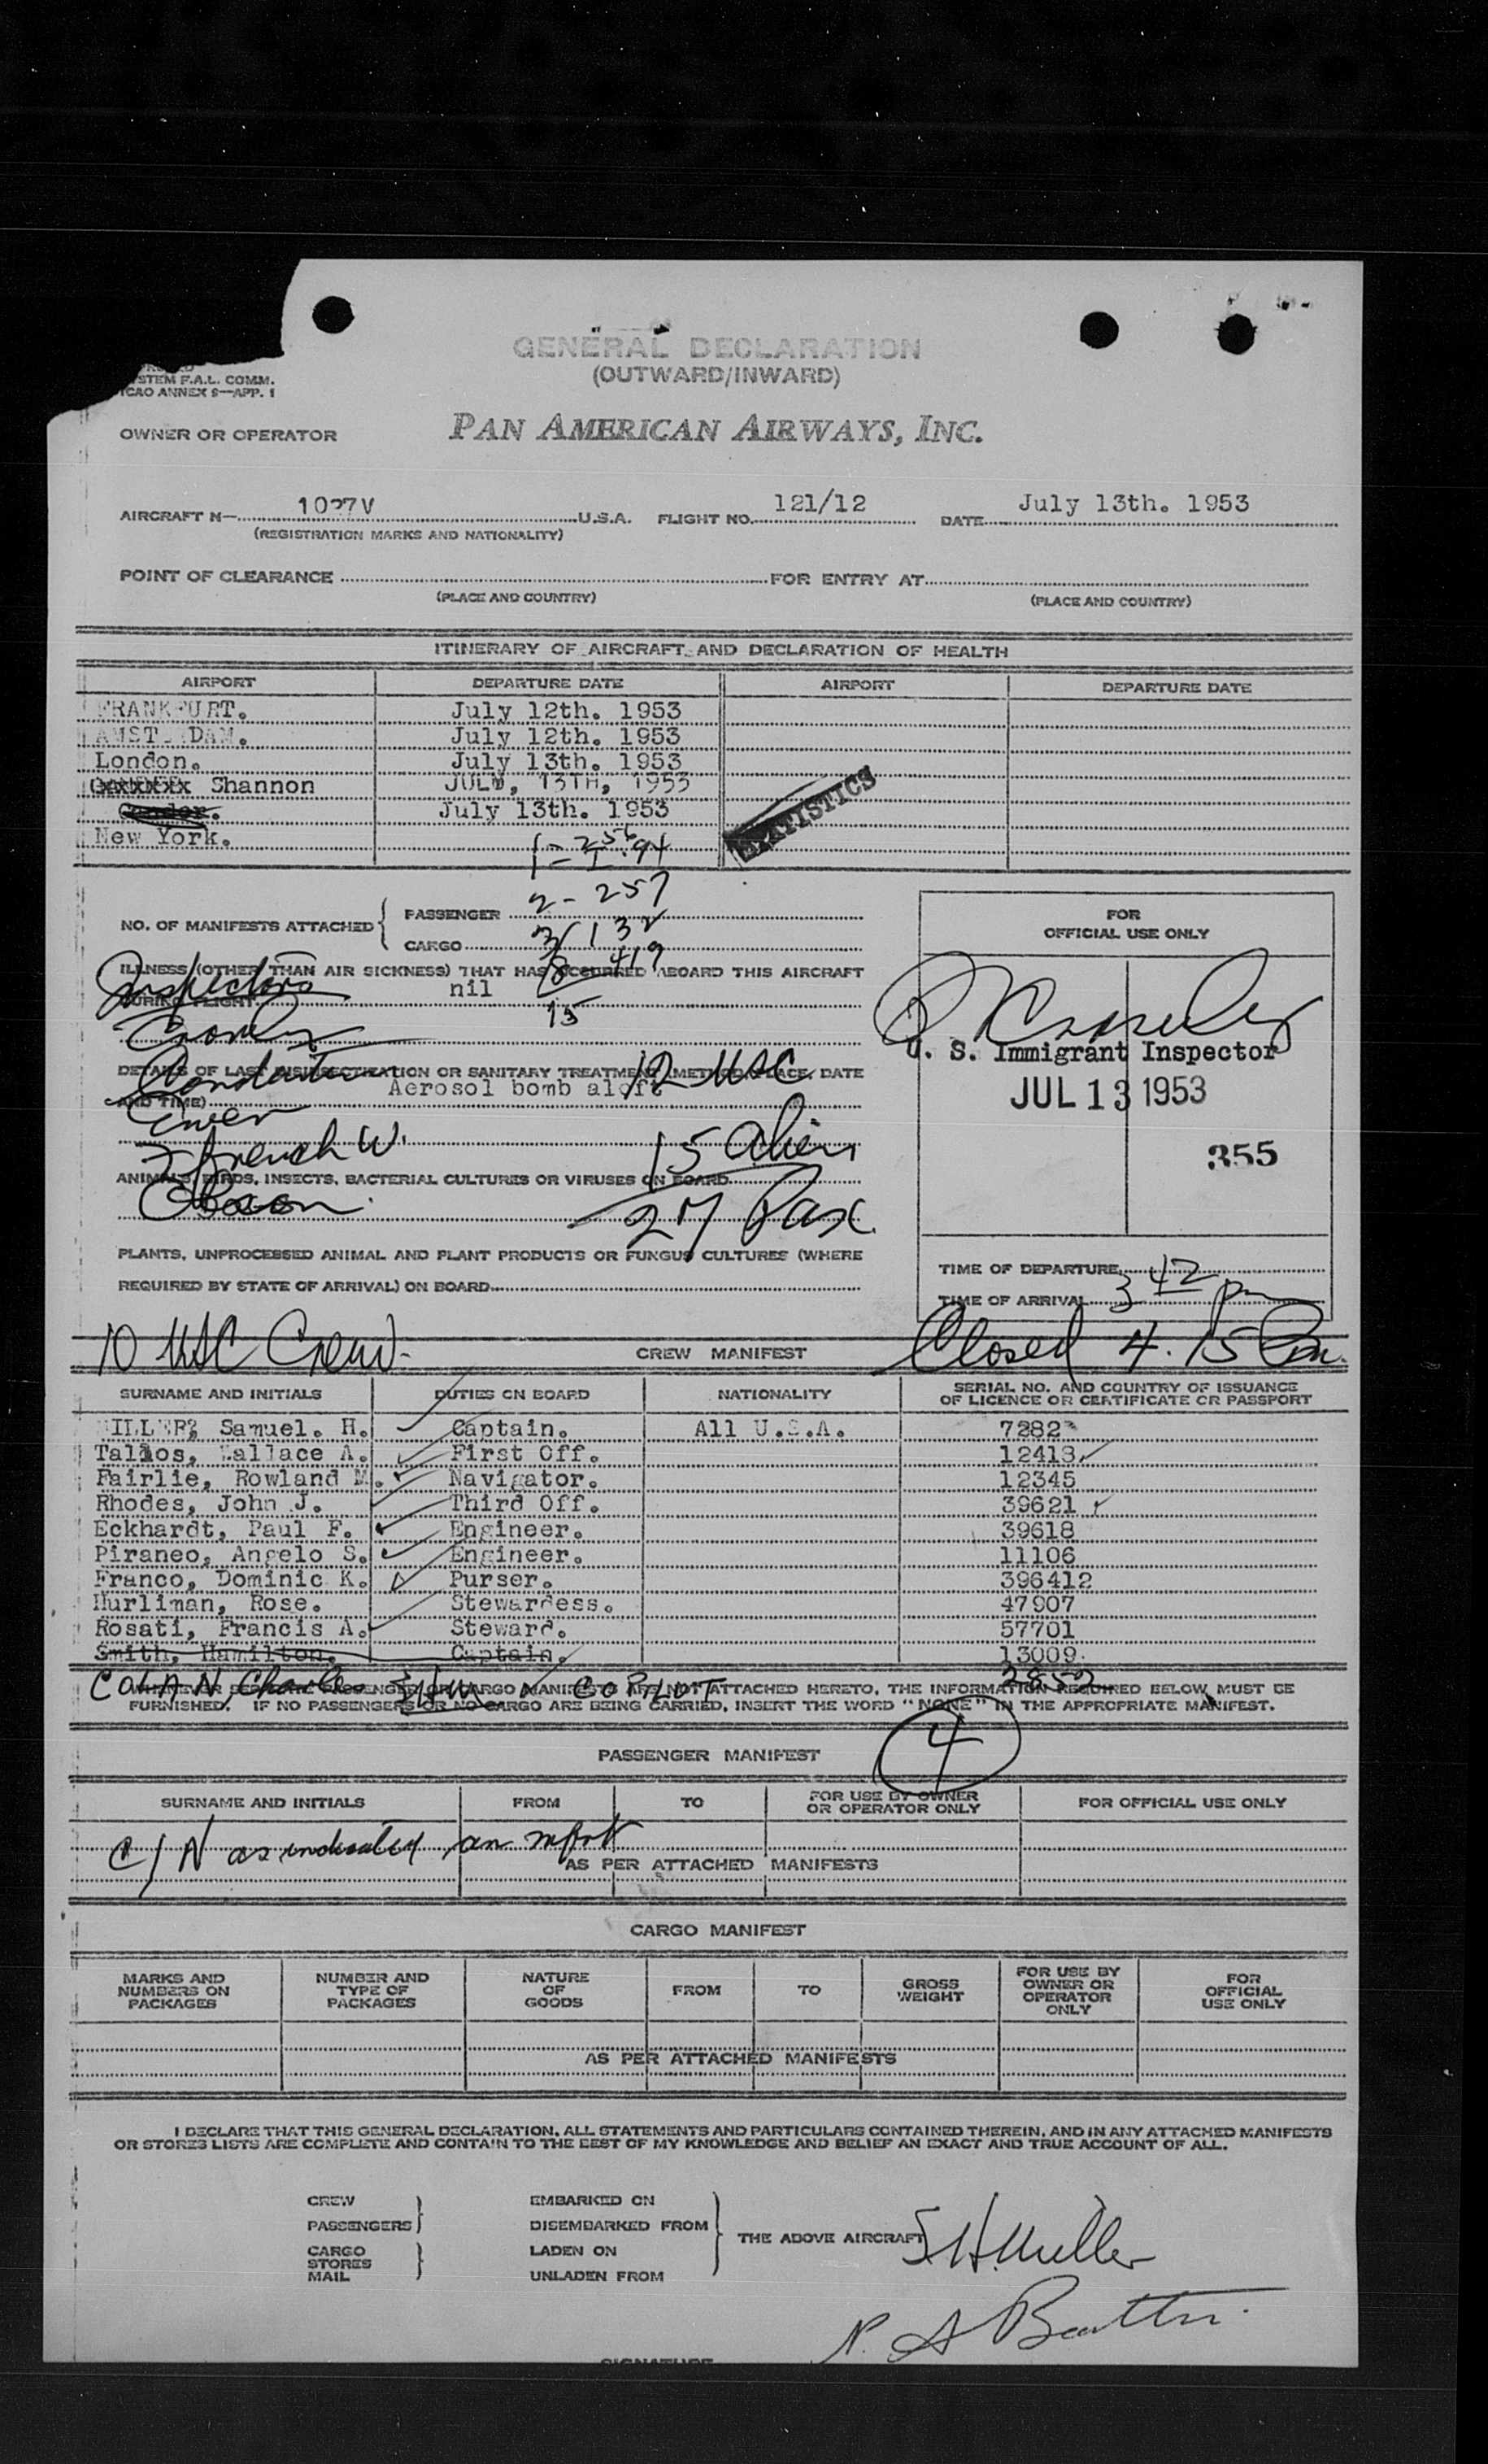 GENERAL DECLARATION
(OUTWARD/INWARD)
STEM F.A.L. COMM.
ICAO ANNEX 9—APP. 1
OWNER OR OPERATOR PAN AMERICAN AIRWAYS, INC.
AIRCRAFT N— 1027V U.S.A. FLIGHT NO. 121/12 DATE July 13th. 1953
(REGISTRATION MARKS AND NATIONALITY)
POINT OF CLEARANCE FOR ENTRY AT
(PLACE AND COUNTRY) (PLACE AND COUNTRY)
ITINERARY OF AIRCRAFT AND DECLARATION OF HEALTH
AIRPORT DEPARTURE DATE AIRPORT DEPARTURE DATE
FRANKFURT. July 12th. 1953
AMSTERDAM. July 12th. 1953
London. July 13th. 1953
Shannon JULY, 13TH, 1953
Gander. July 13th. 1953
New York.
STATISTICS
2 - 257
NO. OF MANIFESTS ATTACHED { PASSENGER
CARGO
FOR
OFFICIAL USE ONLY
ILLNESS (OTHER THAN AIR SICKNESS) THAT HAS OCCURRED ABOARD THIS AIRCRAFT
DURING FLIGHT. nil
15
Inspectors
U. S. Immigrant Inspector
JUL 13 1953
355
DETAILS OF LAST DISINSECTIZATION OR SANITARY TREATMENT (METHOD, PLACE, DATE
AND TIME) Aerosol bomb aloft
12 USC
French W.
15 Alien
ANIMALS, BIRDS, INSECTS, BACTERIAL CULTURES OR VIRUSES ON BOARD
27 Pax.
PLANTS, UNPROCESSED ANIMAL AND PLANT PRODUCTS OR FUNGUS CULTURES (WHERE
REQUIRED BY STATE OF ARRIVAL) ON BOARD
TIME OF DEPARTURE
TIME OF ARRIVAL 3 42 pm
10 USC Crew. CREW MANIFEST Closed 4.15 Pm.
SURNAME AND INITIALS DUTIES ON BOARD NATIONALITY SERIAL NO. AND COUNTRY OF ISSUANCE
OF LICENCE OR CERTIFICATE OR PASSPORT
MILLER, Samuel. H. Captain. All U.S.A. 7282
Tallos, Wallace A. First Off. 12413
Fairlie, Rowland M. Navigator. 12345
Rhodes, John J. Third Off. 39621
Eckhardt, Paul F. Engineer. 39618
Piraneo, Angelo S. Engineer. 11106
Franco, Dominic K. Purser. 396412
Hurliman, Rose. Stewardess. 47907
Rosati, Francis A. Steward. 57701
Smith, Hamilton. Captain. 13009
Charles COPILOT 2852
WHENEVER SEPARATE PASSENGER OR CARGO MANIFESTS ARE NOT ATTACHED HERETO, THE INFORMATION REQUIRED BELOW MUST BE
FURNISHED. IF NO PASSENGERS OR NO CARGO ARE BEING CARRIED, INSERT THE WORD "NONE" IN THE APPROPRIATE MANIFEST.
4
PASSENGER MANIFEST
SURNAME AND INITIALS FROM TO FOR USE BY OWNER
OR OPERATOR ONLY FOR OFFICIAL USE ONLY
C/N as indicated on
AS PER ATTACHED MANIFESTS
CARGO MANIFEST
MARKS AND
NUMBERS ON
PACKAGES
NUMBER AND
TYPE OF
PACKAGES
NATURE
OF
GOODS
FROM
TO
GROSS
WEIGHT
FOR USE BY
OWNER OR
OPERATOR
ONLY
FOR
OFFICIAL
USE ONLY
AS PER ATTACHED MANIFESTS
I DECLARE THAT THIS GENERAL DECLARATION, ALL STATEMENTS AND PARTICULARS CONTAINED THEREIN, AND IN ANY ATTACHED MANIFESTS
OR STORES LISTS ARE COMPLETE AND CONTAIN TO THE BEST OF MY KNOWLEDGE AND BELIEF AN EXACT AND TRUE ACCOUNT OF ALL.
CREW EMBARKED ON
PASSENGERS } DISEMBARKED FROM
THE ABOVE AIRCRAFT S.H. Miller
CARGO LADEN ON
STORES
MAIL } UNLADEN FROM
SIGNATURE